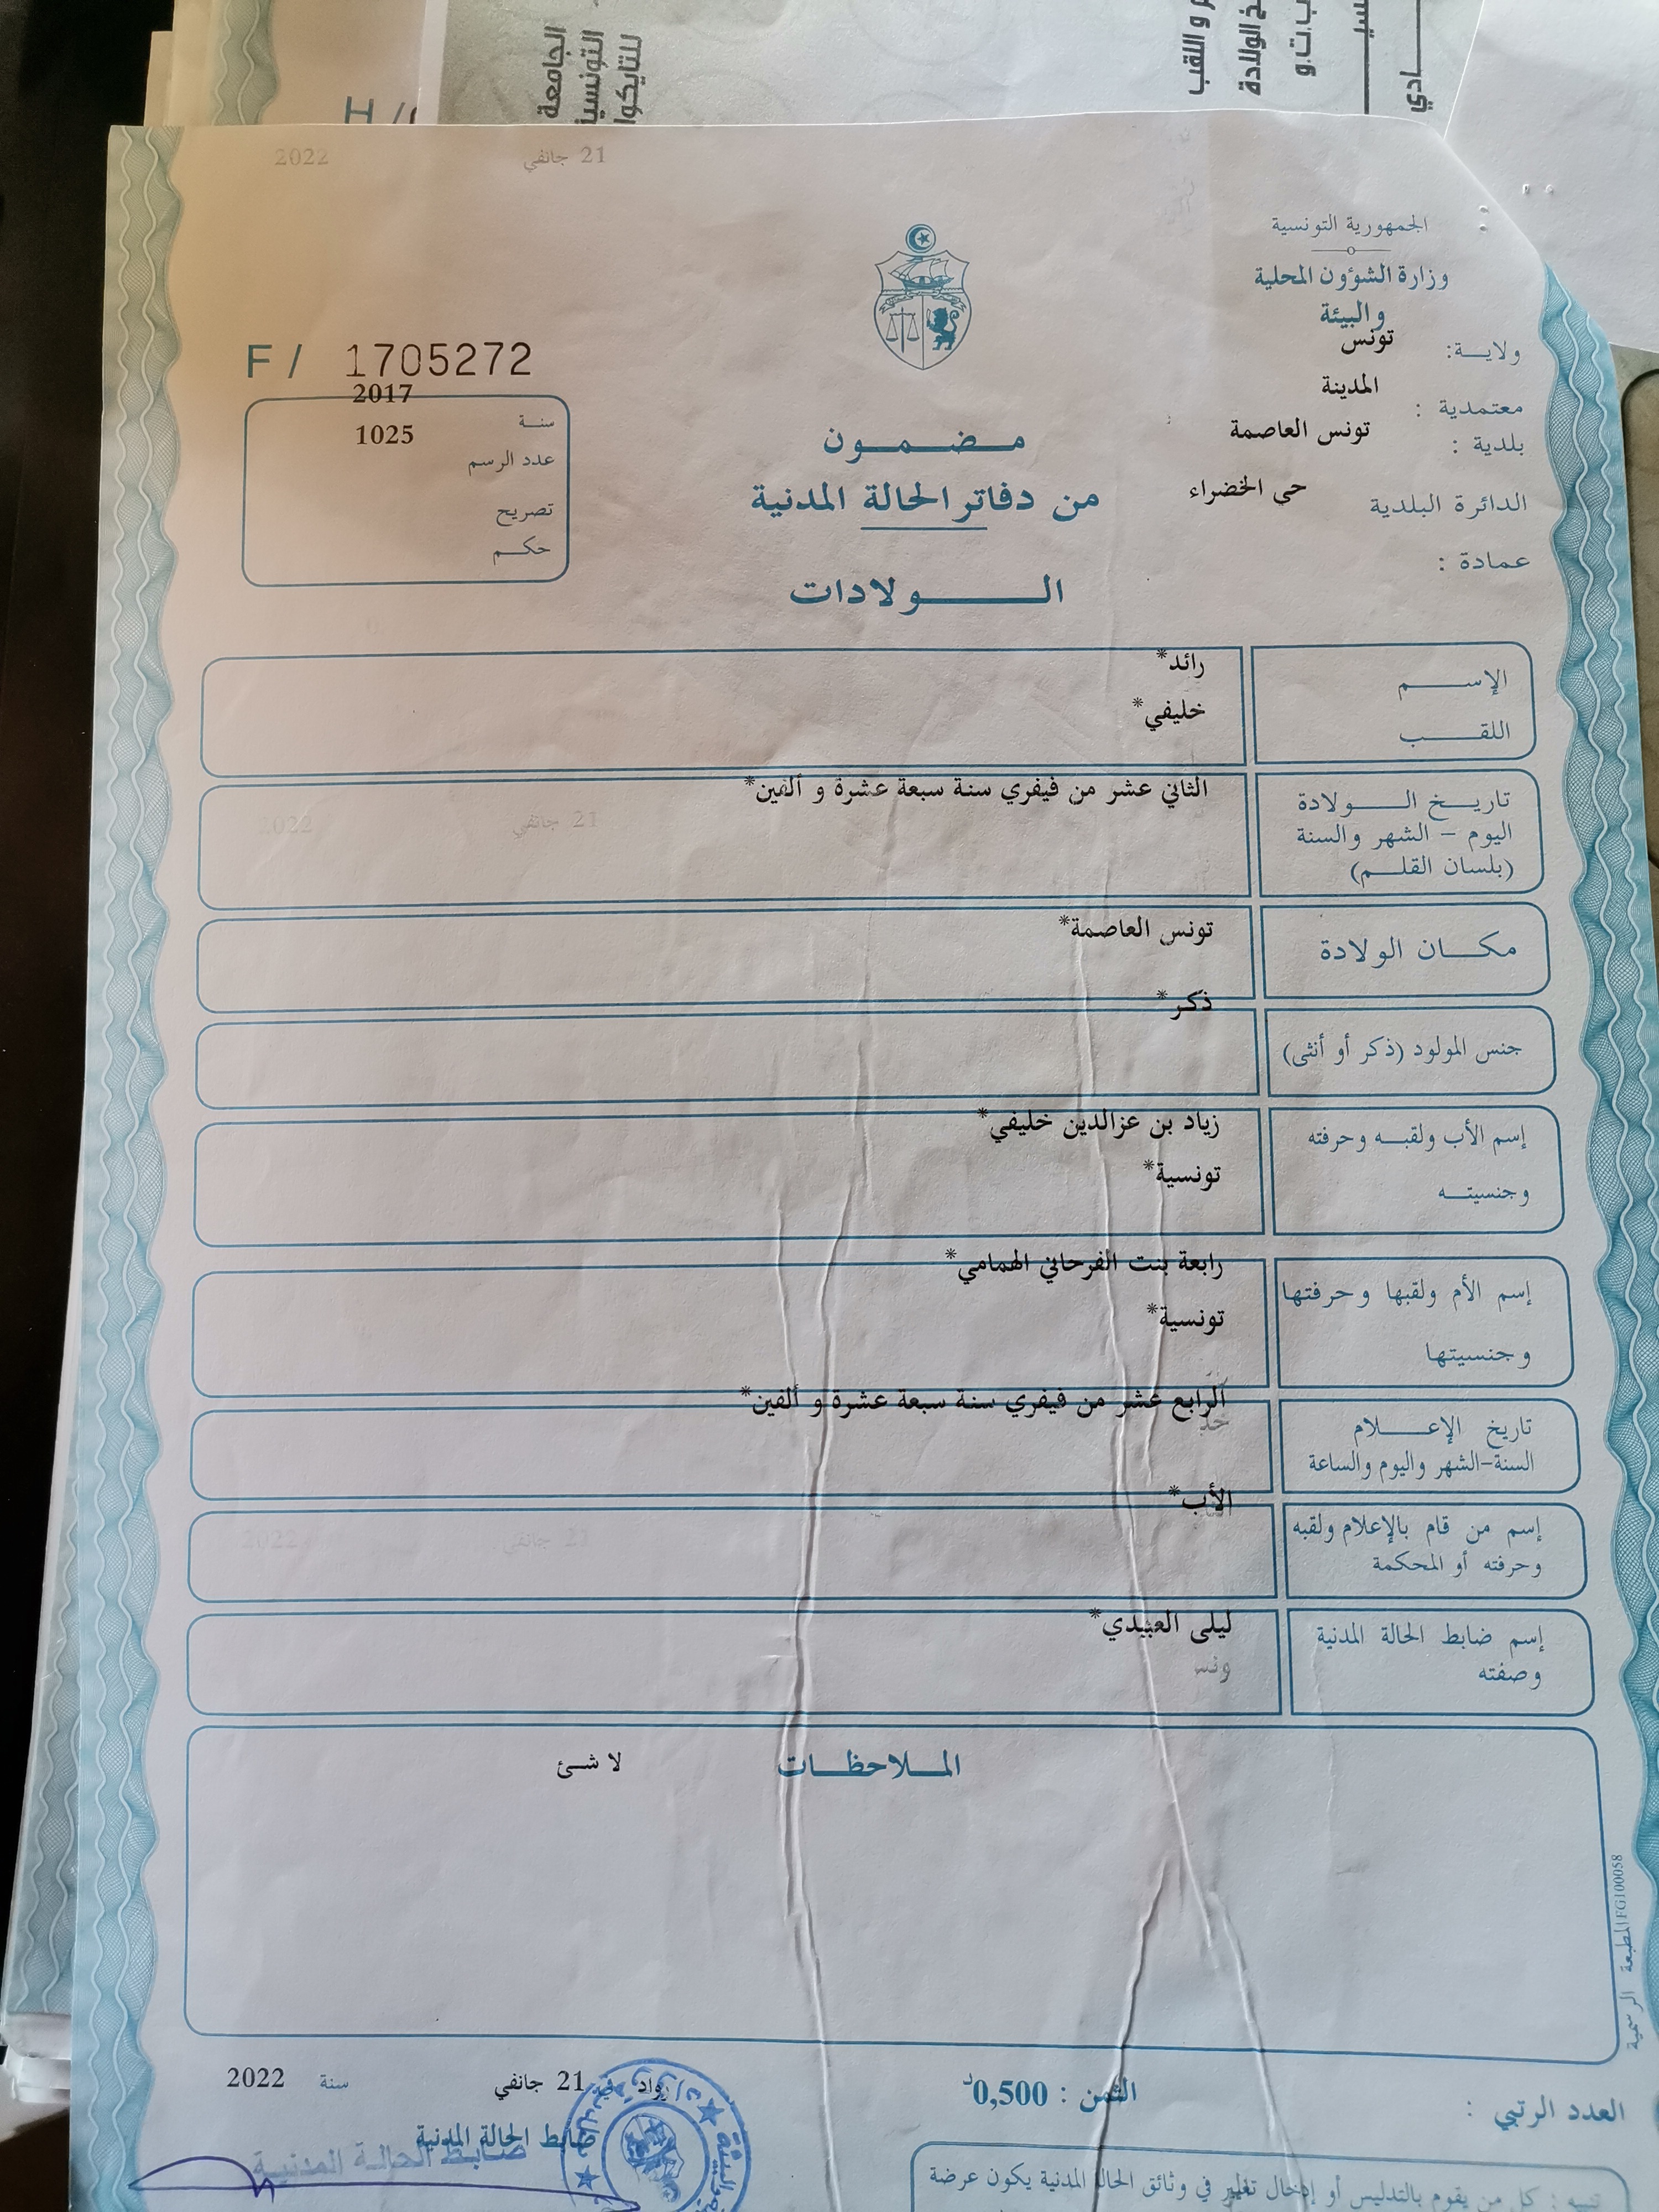 الجامعة
التونسية
للتايكوا
و اللقب
خ الولادة
ب.ت.و
H /
2022
21 جانفي
الجمهورية التونسية
وزارة الشؤون المحلية
والبيئة
ولاية: تونس
معتمدية : المدينة
بلدية : تونس العاصمة
الدائرة البلدية حي الخضراء
عمادة :
F / 1705272
سنة 2017
عدد الرسم 1025
تصريح
حكم
مضمون
من دفاتر الحالة المدنية
الولادات
الإسم رائد*
اللقب خليفي*
تاريخ الولادة
اليوم - الشهر والسنة
(بلسان القلم)
الثاني عشر من فيفري سنة سبعة عشرة و ألفين*
21 جانفي 2022
مكان الولادة
تونس العاصمة*
جنس المولود (ذكر أو أنثى)
ذكر*
إسم الأب ولقبه وحرفته
زياد بن عزالدين خليفي*
وجنسيته
تونسية*
إسم الأم ولقبها وحرفتها
رابعة بنت الفرحاني الهمامي*
وجنسيتها
تونسية*
تاريخ الإعلام
السنة-الشهر واليوم والساعة
الرابع عشر من فيفري سنة سبعة عشرة و ألفين*
إسم من قام بالإعلام ولقبه
وحرفته أو المحكمة
الأب*
21 جانفي 2022
إسم ضابط الحالة المدنية
وصفته
ليلى العبيدي*
ونس
الملاحظات
لا شئ
المطبعة الرسمية FG100058
رواد في 21 جانفي سنة 2022
ضابط الحالة المدنية
ضابط الحالة المدنية
الثمن : 0,500د
العدد الرتبي :
تنبيه : كل من يقوم بالتدليس أو إدخال تغيير في وثائق الحالة المدنية يكون عرضة